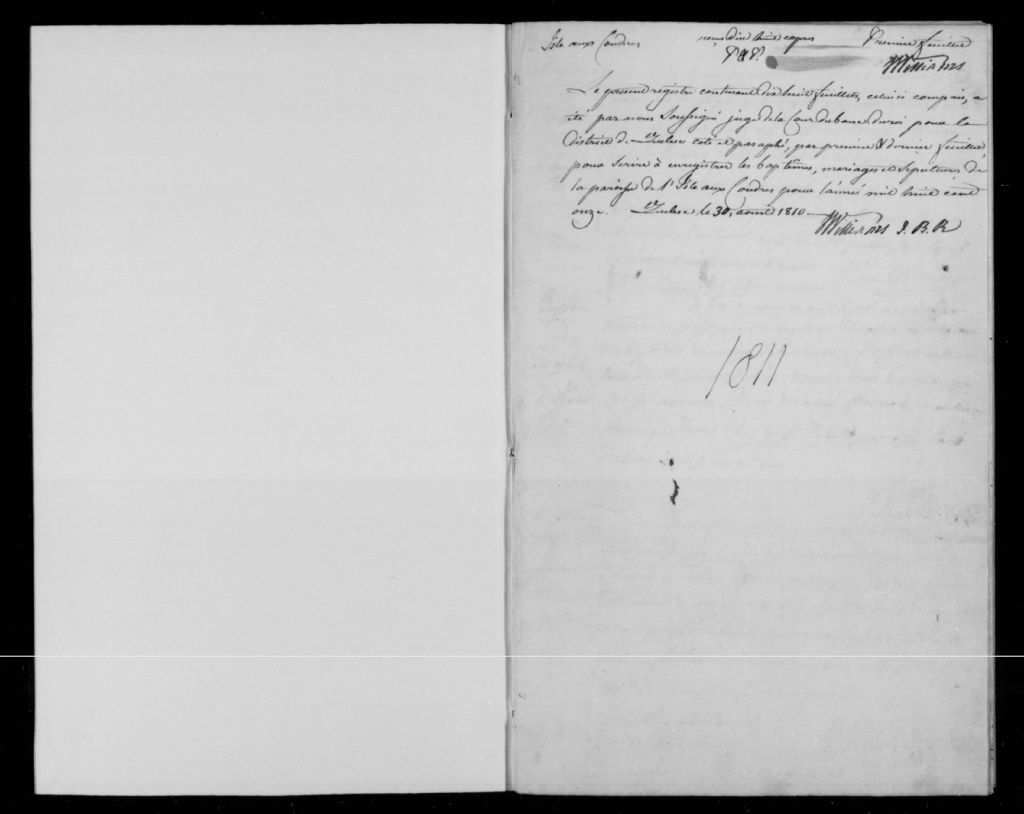 Isle aux Coudres Premier feuillet
Williams
Le present registre contenant dix huit feuillets, celui ci compris, a
été par nous Soussigné juge de la Cour du banc du roi pour le
district de Quebec coté et paraphé, par premier & dernier feuillet
pour servir à enregistrer les baptêmes, mariages et sepultures de
la paroisse de l'Isle aux Coudres pour l'année mil huit cent
onze. Quebec le 30, aout 1810
Williams J. B. R
1811